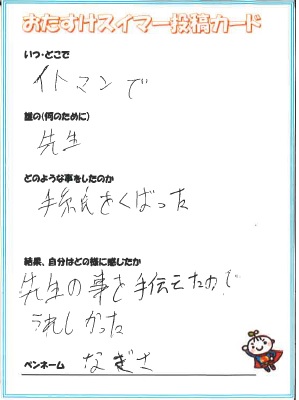 おたすけスイマー投稿カード
いつ・どこで
イトマンで
誰の(何のために)
先生
どのような事をしたのか
手紙をくばった
結果、自分はどの様に感じたか
先生の事を手伝えたので
うれしかった
ペンネーム なぎさ